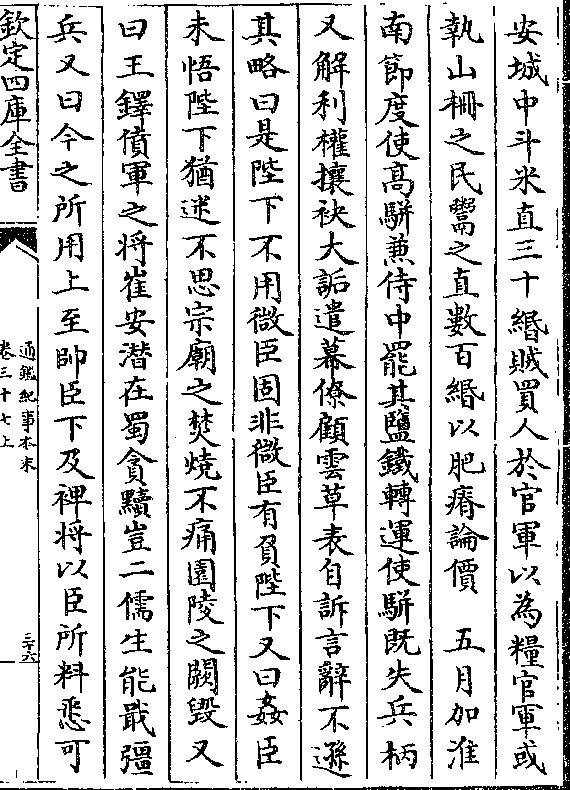 安城中斗米直三十緡賊買人於官軍以為糧官軍或
執山柵之民鬻之直數百緡以肥瘠論價　五月加淮
南節度使高駢兼侍中罷其鹽鐵轉運使駢既失兵柄
又解利權攘袂大詬遣幕僚顧雲草表自訴言辭不遜
其略曰是陛下不用微臣固非微臣有負陛下又曰姦臣
未悟陛下猶迷不思宗廟之焚燒不痛園陵之闕毁又
曰王鐸僨軍之將崔安潜在蜀貪黷豈二儒生能戢彊
兵又曰今之所用上至帥臣下及裨將以臣所料悉可
欽定四庫全書
通鑑紀事本末
卷三十七上
三十六